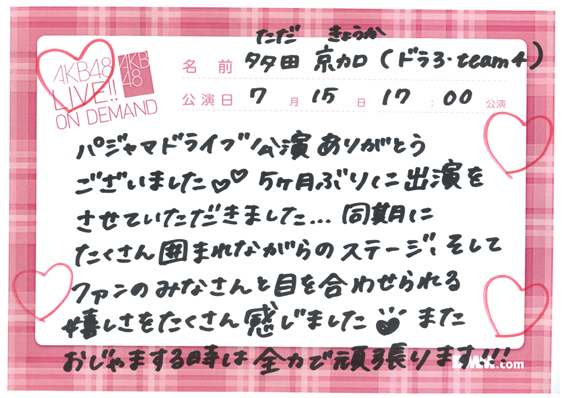 ただ きょうか
AKB48
LIVE!!
ON DEMAND
AKB
48
名前 多田 京加 (ドラ3・team4)
公演日 7月 15日 17:00 公演
パジャマドライブ公演ありがとう
ございました♡♡ 5ヶ月ぶりに出演を
させていただきました... 同期に
たくさん囲まれながらのステージ、そして
ファンのみなさんと目を合わせられる
嬉しさをたくさん感じました また
おじゃまする時は全力で頑張ります!!!
.com